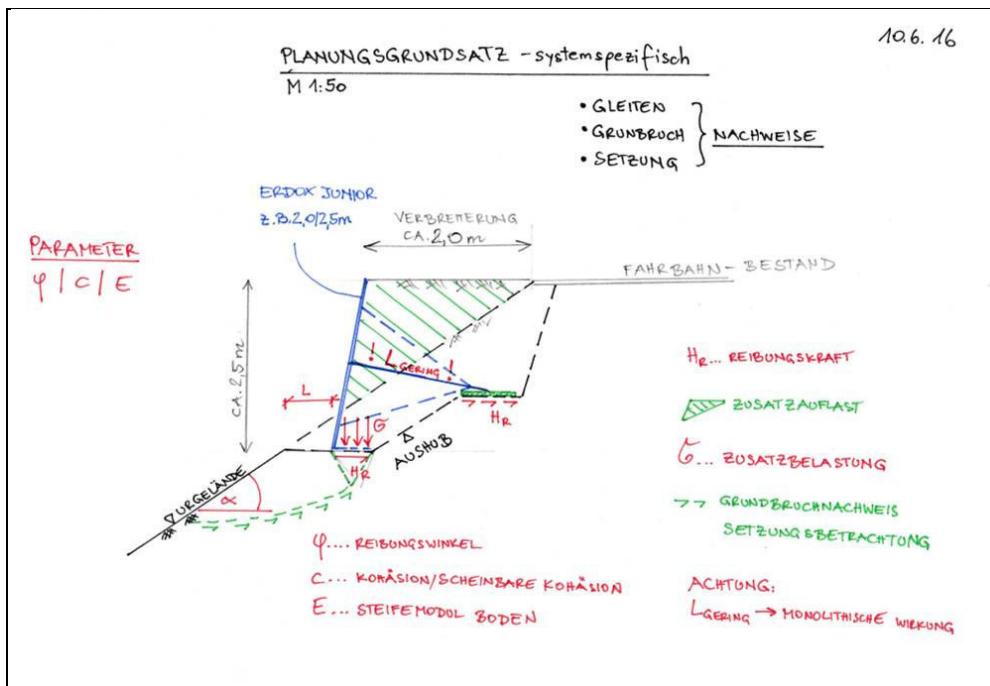 10.6.16
PLANUNGSGRUNDSATZ - systemspezifisch
M 1:50
• GLEITEN
• GRUNBRUCH
• SETZUNG
NACHWEISE
ERDOX JUNIOR
z.B. 2,0/2,5m
VERBREITERUNG
CA. 2,0 m
PARAMETER
φ / C / E
FAHRBAHN - BESTAND
CA. 2,5 m
! L GERING !
L
G
HR
HR
AUSHUB
URGELÄNDE
α
HR... REIBUNGSKRAFT
ZUSATZAUFLAST
G... ZUSATZBELASTUNG
GRUNDBRUCHNACHWEIS
SETZUNGSBETRACHTUNG
φ.... REIBUNGSWINKEL
C... KOHÄSION/SCHEINBARE KOHÄSION
E... STEIFEMODUL BODEN
ACHTUNG:
LGERING → MONOLITHISCHE WIRKUNG